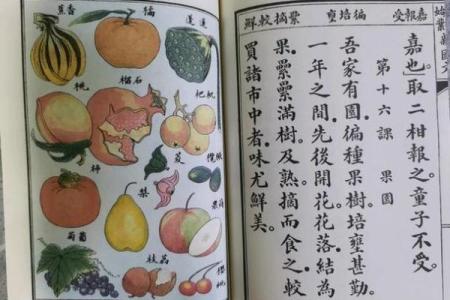 嘉報受 徧培壅 纍摘較鮮
嘉也。取二柑報之。童子不受。
第十六課 果園
吾家有園。徧種果樹。培壅甚勤。
一年之間。先後開花。花落結為
果。纍纍滿樹。及熟。摘而食之。較
買諸市中者。味尤鮮美。
蓮蓬
橘
香蕉
枇杷
石榴
桃
菱
柿
梨
櫻桃
荔枝
葡萄